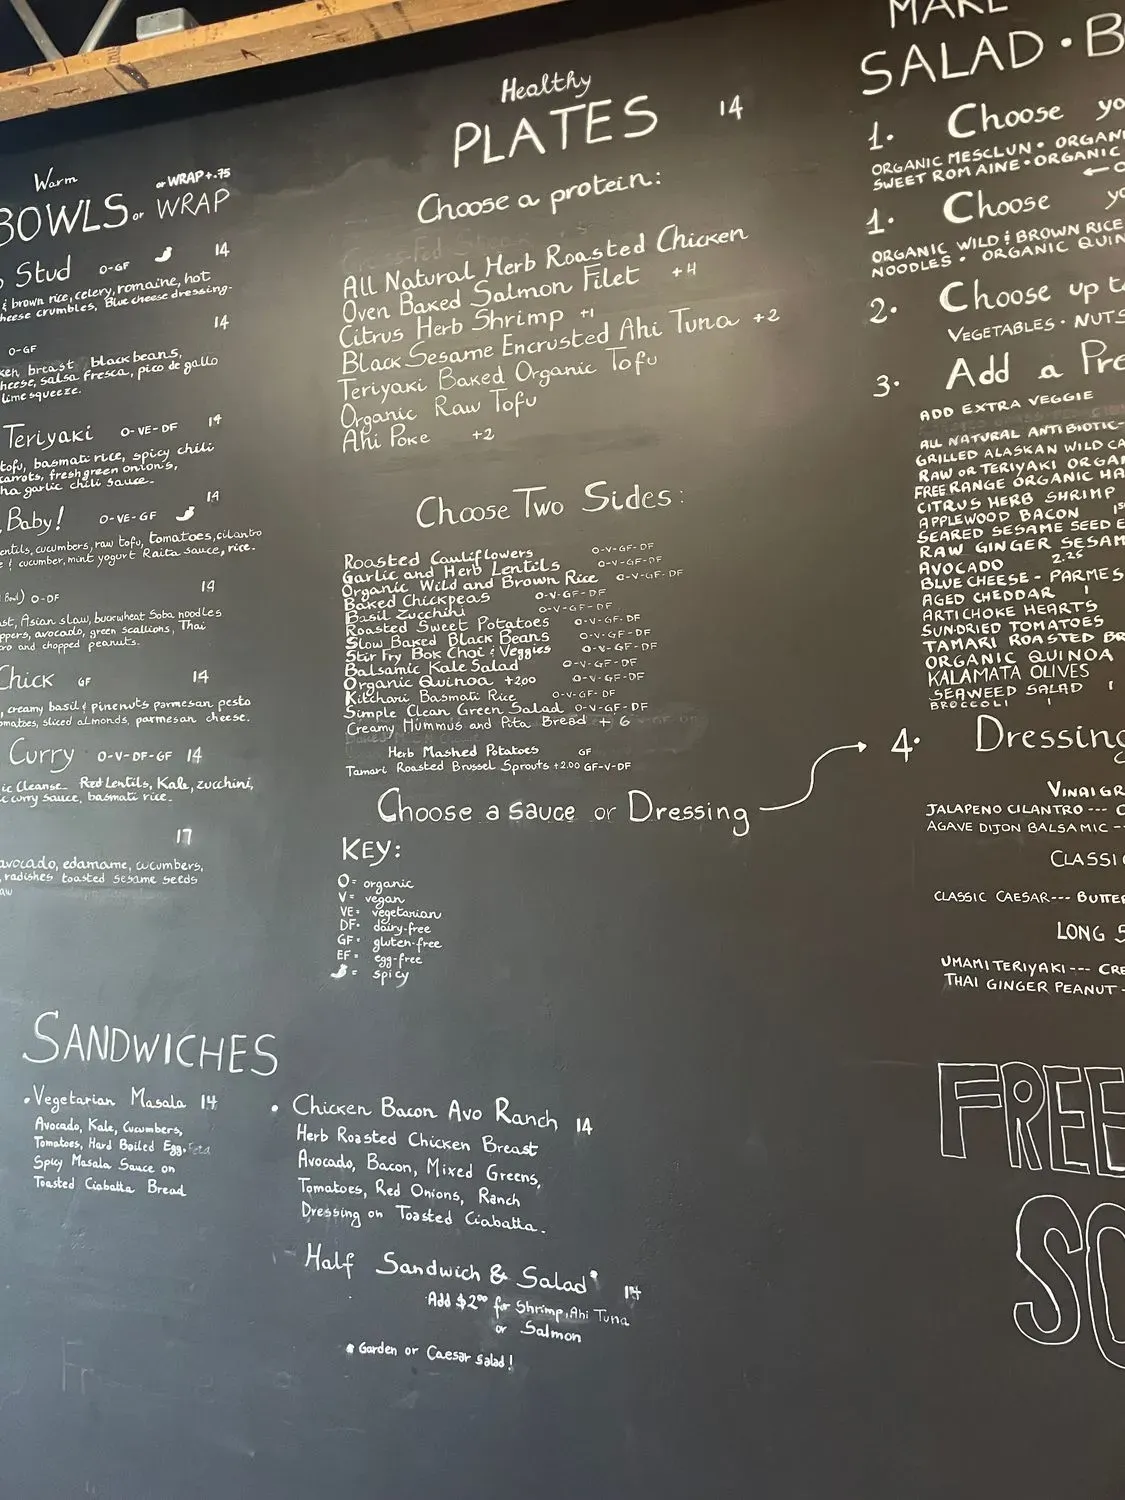 Warm
or WRAP +.75
BOWLS or WRAP
Stud O-GF 14
& brown rice, celery, romaine, hot
cheese crumbles, Blue cheese dressing.
14
O-GF
breast black beans,
cheese, salsa fresca, pico de gallo
lime squeeze.
Teriyaki O-VE-DF 14
tofu, basmati rice, spicy chili
carrots, fresh green onions,
garlic chili sauce.
14
Baby! O-VE-GF
lentils, cucumbers, raw tofu, tomatoes, cilantro
& cucumber, mint yogurt Raita sauce, rice.
14
Bowl) O-DF
Asian slaw, buckwheat Soba noodles
avocado, green scallions, Thai
and chopped peanuts.
Chick GF 14
creamy basil & pinenuts parmesan pesto
sliced almonds, parmesan cheese.
Curry O-V-DF-GF 14
Cleanse Red Lentils, Kale, zucchini,
curry sauce, basmati rice.
17
avocado, edamame, cucumbers,
radishes toasted sesame seeds
Healthy
PLATES 14
Choose a protein:
All Natural Herb Roasted Chicken
Oven Baked Salmon Filet +4
Citrus Herb Shrimp +1
Black Sesame Encrusted Ahi Tuna +2
Teriyaki Baked Organic Tofu
Organic Raw Tofu
Ahi Poke +2
Choose Two Sides:
Roasted Cauliflowers O-V-GF-DF
Garlic and Herb Lentils O-V-GF-DF
Organic Wild and Brown Rice O-V-GF-DF
Baked Chickpeas O-V-GF-DF
Basil Zucchini O-V-GF-DF
Roasted Sweet Potatoes O-V-GF-DF
Slow Baked Black Beans O-V-GF-DF
Stir Fry Bok Choi & Veggies O-V-GF-DF
Balsamic Kale Salad O-V-GF-DF
Organic Quinoa +2.00 O-V-GF-DF
Kitchari Basmati Rice O-V-GF-DF
Simple Clean Green Salad O-V-GF-DF
Creamy Hummus and Pita Bread + 6
Herb Mashed Potatoes GF
Tamari Roasted Brussel Sprouts +2.00 GF-V-DF
Choose a sauce or Dressing
KEY:
O= organic
V= vegan
VE= vegetarian
DF= dairy-free
GF= gluten-free
EF= egg-free
= spicy
MAKE
SALAD • B
1. Choose
ORGANIC MESCLUN •
SWEET ROMAINE • ORGANIC
1. Choose
ORGANIC WILD & BROWN RICE
NOODLES • ORGANIC
2. Choose up
VEGETABLES • NUTS
3. Add a
ADD EXTRA VEGGIE
ALL NATURAL ANTIBIOTIC-
GRILLED ALASKAN WILD
RAW OR TERIYAKI
FREE RANGE ORGANIC
CITRUS HERB SHRIMP
APPLEWOOD BACON
SEARED SESAME SEED
RAW GINGER
AVOCADO 2.25
BLUE CHEESE -
AGED CHEDDAR 1
ARTICHOKE HEARTS
SUN-DRIED TOMATOES
TAMARI ROASTED
ORGANIC QUINOA
KALAMATA OLIVES
SEAWEED SALAD 1
BROCCOLI 1
4. Dressing
JALAPENO CILANTRO ---
AGAVE DIJON BALSAMIC --
CLASSIC CAESAR---
LONG
UMAMI TERIYAKI ---
THAI GINGER PEANUT -
FREE
SANDWICHES
• Vegetarian Masala 14
Avocado, Kale, Cucumbers,
Tomatoes, Hard Boiled Egg, Feta
Spicy Masala Sauce on
Toasted Ciabatta Bread
• Chicken Bacon Avo Ranch 14
Herb Roasted Chicken Breast
Avocado, Bacon, Mixed Greens,
Tomatoes, Red Onions, Ranch
Dressing on Toasted Ciabatta.
Half Sandwich & Salad* 14
Add $2.00 for Shrimp, Ahi Tuna
or Salmon
* Garden or Caesar Salad!